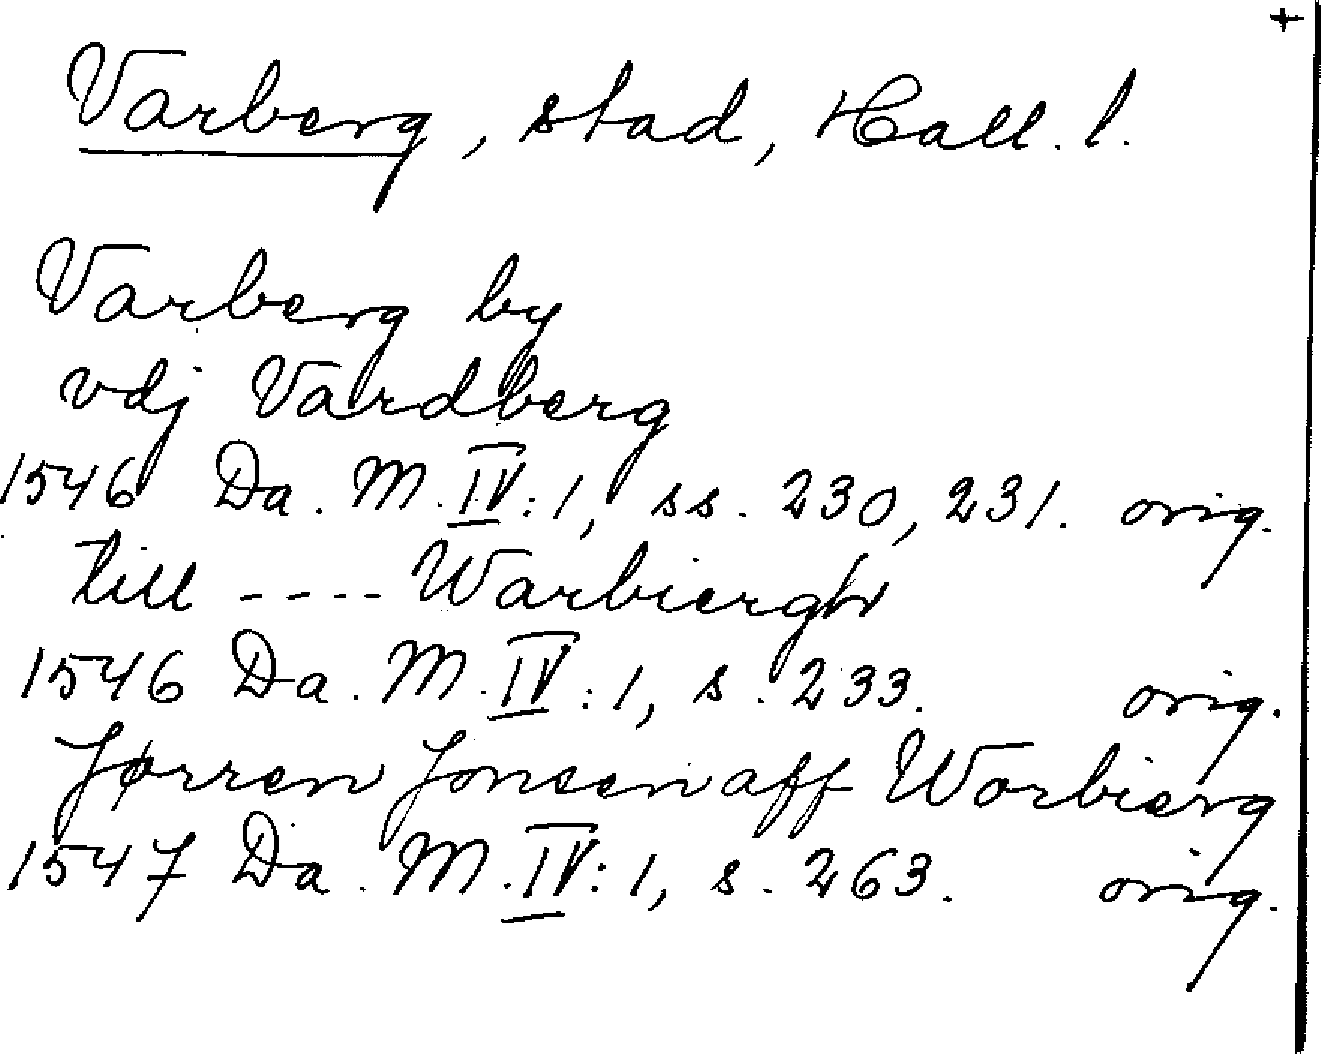 +
Varberg, stad, Hall. l.
Varberg by
vdj Vardberg
1546 Da. M. IV:1, ss. 230, 231. orig.
till ---- Warbiergh
1546 Da. M. IV:1, s. 233. orig.
Jørren Jonsen aff Worbierg
1547 Da. M. IV:1, s. 263. orig.